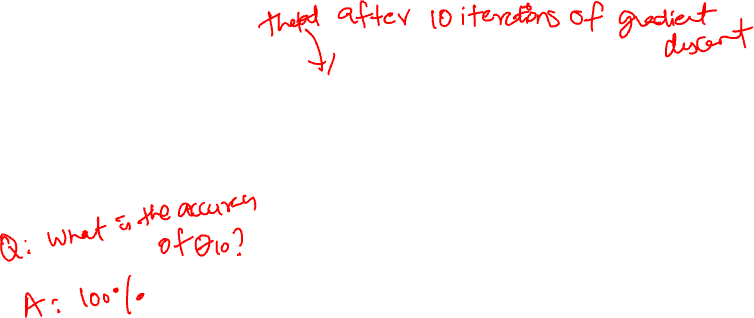 after 10 iterations of gradient
descent
Q: What is the accuracy
of θ10?
A: 100%